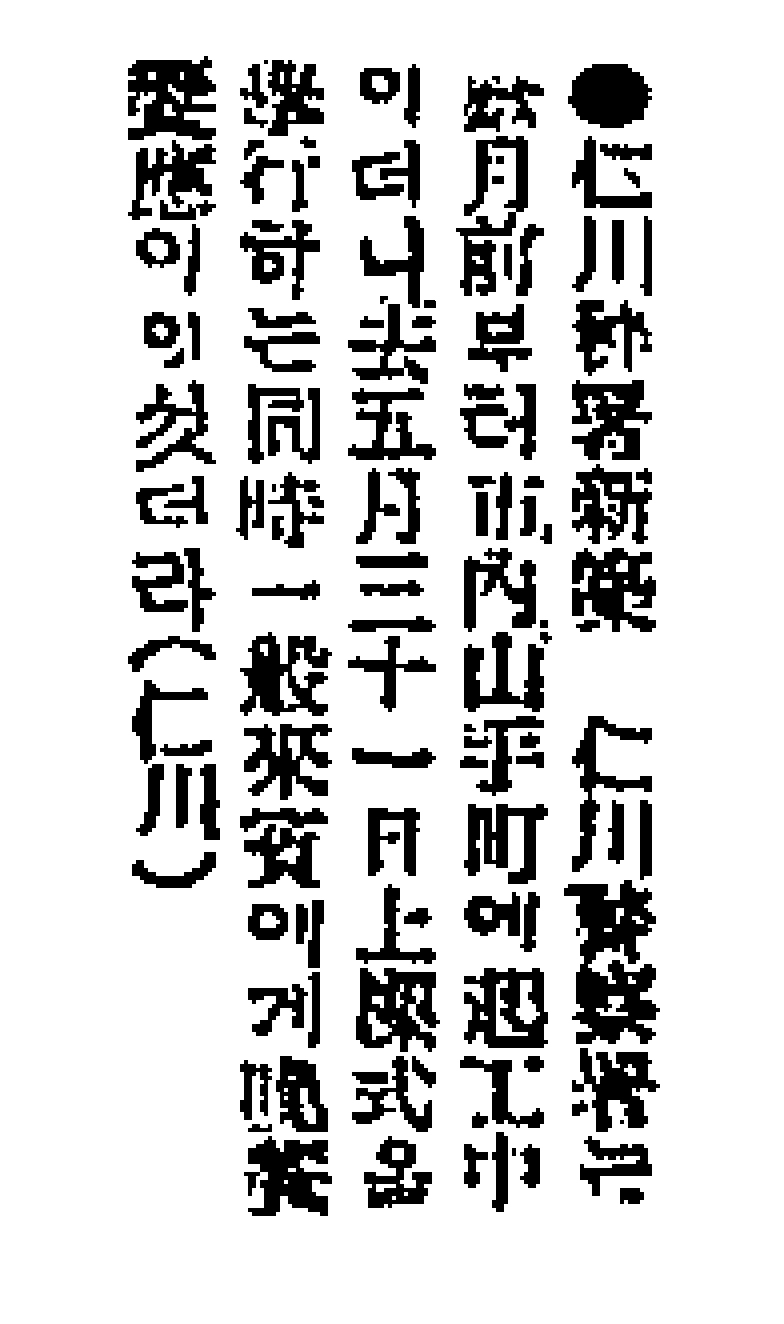 ●仁川署新築 仁川는
數月前부터市內山手町에起工中
이더니去五月三十一日上樑式을
擧行하는同時一般來賓에게
饗應이잇섯더라(仁川)